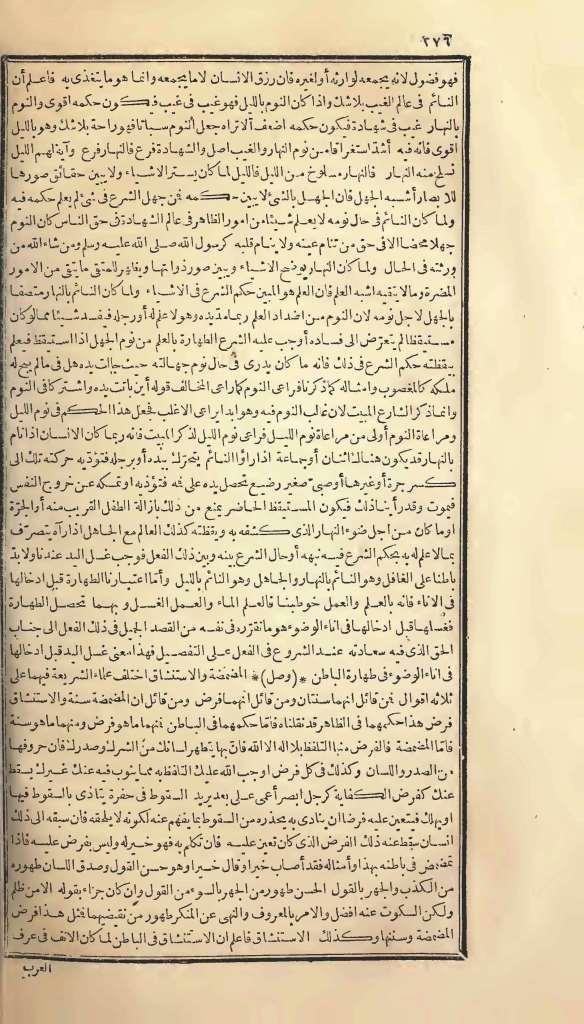 ٢٧٦
فهو فضول لانه يجمعه لوارثه أو لغيره فان رزق الانسان لا ما يجمعه وانما هو ما يتغذى به فاعلم أن
النائم فى عالم الغيب بلا شك واذا كان النوم بالليل فهو غيب فى غيب فيكون حكمه أقوى والنوم
بالنهار غيب فى شهادة فيكون حكمه أضعف ألا تراه جعل النوم سباتا فهو راحة بلا شك وهو بالليل
أقوى فانه فيه أشد استغراقا من نوم النهار والغيب أصل والشهادة فرع فالنهار فرع وآية لهم الليل
نسلخ منه النهار فالنهار مسلوخ من الليل فالليل لما كان يستر الاشياء ولا يبين حقائق صورها
للابصار أشبه الجهل فان الجهل بالشئ لا يبين حكمه فمن جهل الشرع فى شئ لم يعلم حكمه فيه
ولما كان النائم فى حال نومه لا يعلم شيئا من أمور الظاهر فى عالم الشهادة فى حق الناس كان النوم
جهلا محضا الا فى حق من تنام عينه ولا ينام قلبه كرسول الله صلى الله عليه وسلم ومن شاء الله من
ورثته فى الحال ولما كان النهار يوضح الاشياء ويبين صور ذواتها ويظهر للمتقى ما يتقى من الامور
المضرة وما لا يتقيه أشبه العلم فان العلم هو المبين حكم الشرع فى الاشياء ولما كان النائم بالنهار متصفا
بالجهل لاجل نومه لان النوم من أضداد العلم ربما مد يده وهو لا علم له أو رجله فيفسد شيئا مما لو كان
مستيقظا لم يتعرض الى فساده أوجب عليه الشرع الطهارة بالعلم من نوم الجهل اذا استيقظ فيعلم
بيقظته حكم الشرع فى ذلك فانه ما كان يدرى فى حال نوم جهالته حيث جالت يده هل فيما لم يبح له
ملكه كالمغصوب وأمثاله كما ذكرنا فراعى النوم كما راعى المخالف قوله أين باتت يده واشتركا فى النوم
وانما ذكر الشارع المبيت لان غالب النوم فيه وهو أبدا يراعى الاغلب فجعل هذا الحكم فى نوم الليل
ومراعاة النوم أولى من مراعاة نوم الليل فراعى نوم الليل لذكر المبيت فانه ربما كان الانسان اذا نام
بالنهار قد يكون هناك اثنان أو جماعة اذا رأوا النائم يتحرك بيده أو برجله فتؤديه حركته تلك الى
كسر جرة أو غيرها أو صبى صغير رضيع تحصل يده على فمه فتؤذيه أو تمسكه عن خروج النفس
فيموت وقد رأينا ذلك فيكون المستيقظ الحاضر يمنع من ذلك بازالة الطفل القريب منه أو الجرة
أو ما كان من أجل ضوء النهار الذى كشفه به ويقظته كذلك العالم مع الجاهل اذا رآه يتصرف
بما لا علم له به بحكم الشرع فيه نبهه أو حال الشرع بينه وبين ذلك الفعل فوجب غسل اليد عندنا ولا بد
باطنا على الغافل وهو النائم بالنهار والجاهل وهو النائم بالليل وأما اعتبارنا الطهارة قبل ادخالها
فى الاناء فانه بالعلم والعمل خوطبنا فالعلم الماء والعمل الغسل وبهما تحصل الطهارة
فغسلها قبل ادخالها فى اناء الوضوء هو ما تقرره فى نفسه من القصد الجميل فى ذلك الفعل الى جناب
الحق الذى فيه سعادته عند الشروع فى الفعل على التفصيل فهذا معنى غسل اليد قبل ادخالها
فى اناء الوضوء فى طهارة الباطن *(وصل)* المضمضة والاستنشاق اختلف علماء الشريعة فيهما على
ثلاثة أقوال فمن قائل انهما سنتان ومن قائل انهما فرض ومن قائل ان المضمضة سنة والاستنشاق
فرض هذا حكمهما فى الظاهر قد نقلناه فاما حكمهما فى الباطن فمنهما ما هو فرض ومنهما ما هو سنة
فاما المضمضة فالفرض منها التلفظ بلا اله الا الله فان بها يتطهر لسانك من الشرك وصدرك فان حروفها
من الصدر واللسان وكذلك فى كل فرض أوجب الله عليك التلفظ به مما ينوب فيه عنك غيرك يسقط
عنك كفرض الكفاية كرجل أبصر أعمى على بعد يريد السقوط فى حفرة يتأذى بالسقوط فيها
أو يهلك فيتعين عليه فرضا أن ينادى به يحذره من السقوط بما يفهم عنه لكونه لا يلحقه فان سبقه الى ذلك
انسان سقط عنه ذلك الفرض الذى كان تعين عليه فان تكلم به فهو خير له وليس بفرض عليه فاذا
تمضمض فى باطنه بهذا وأمثاله فقد أصاب خيرا وقال خيرا وهو حسن القول وصدق اللسان طهوره
من الكذب والجهر بالقول الحسن طهور من الجهر بالسوء من القول وان كان جزاء بقوله الا من ظلم
ولكن السكوت عنه أفضل والامر بالمعروف والنهى عن المنكر طهور من نقيضهما فمثل هذا فرض
المضمضة وسنتها وكذلك الاستنشاق فاعلم ان الاستنشاق فى الباطن لما كان الانف فى عرف
العرب